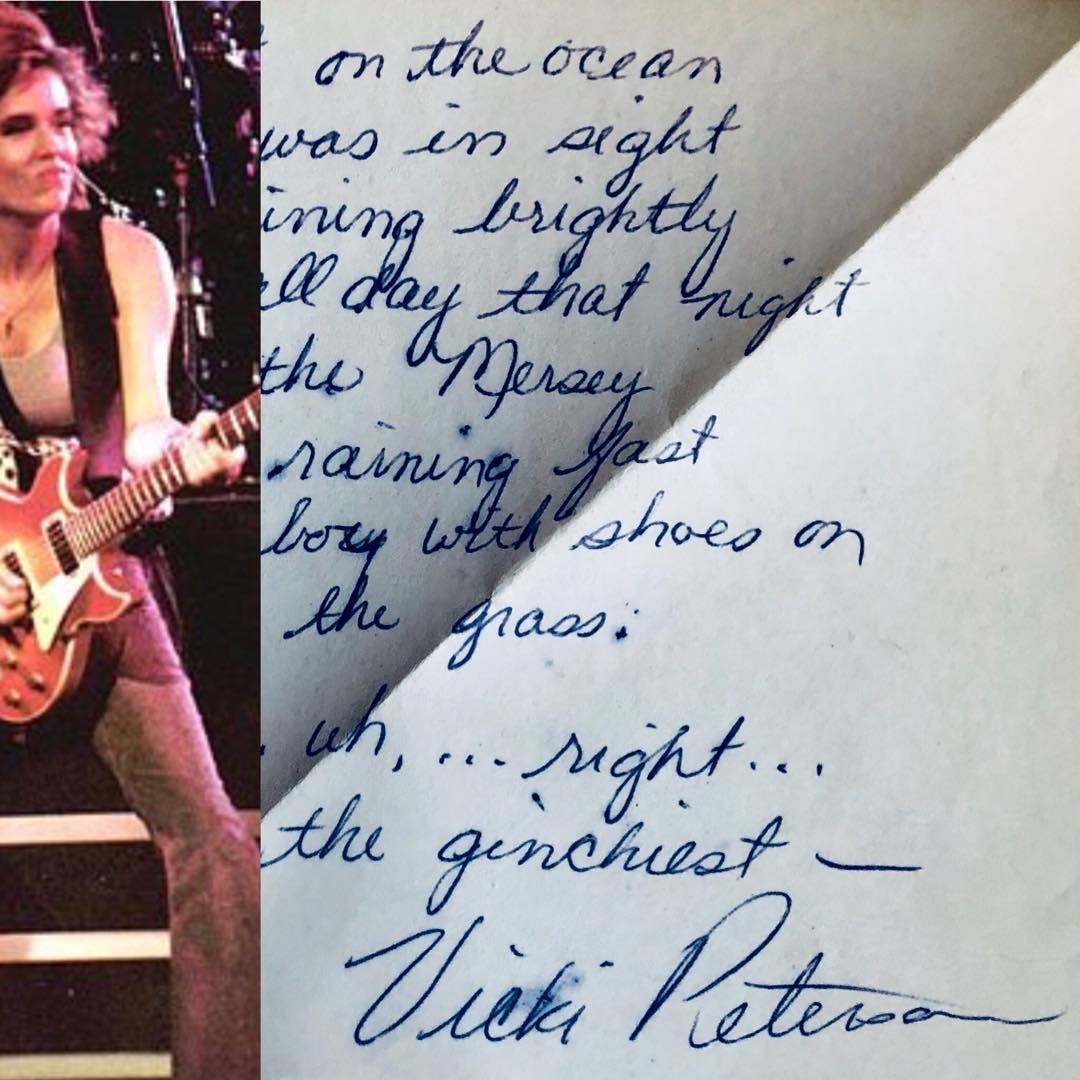 on the ocean
was in sight
ining brightly
ll day that night
the Mersey
raining fast
boy with shoes on
the grass.
. uh, ... right...
the ginchiest —
Vicki Peterson